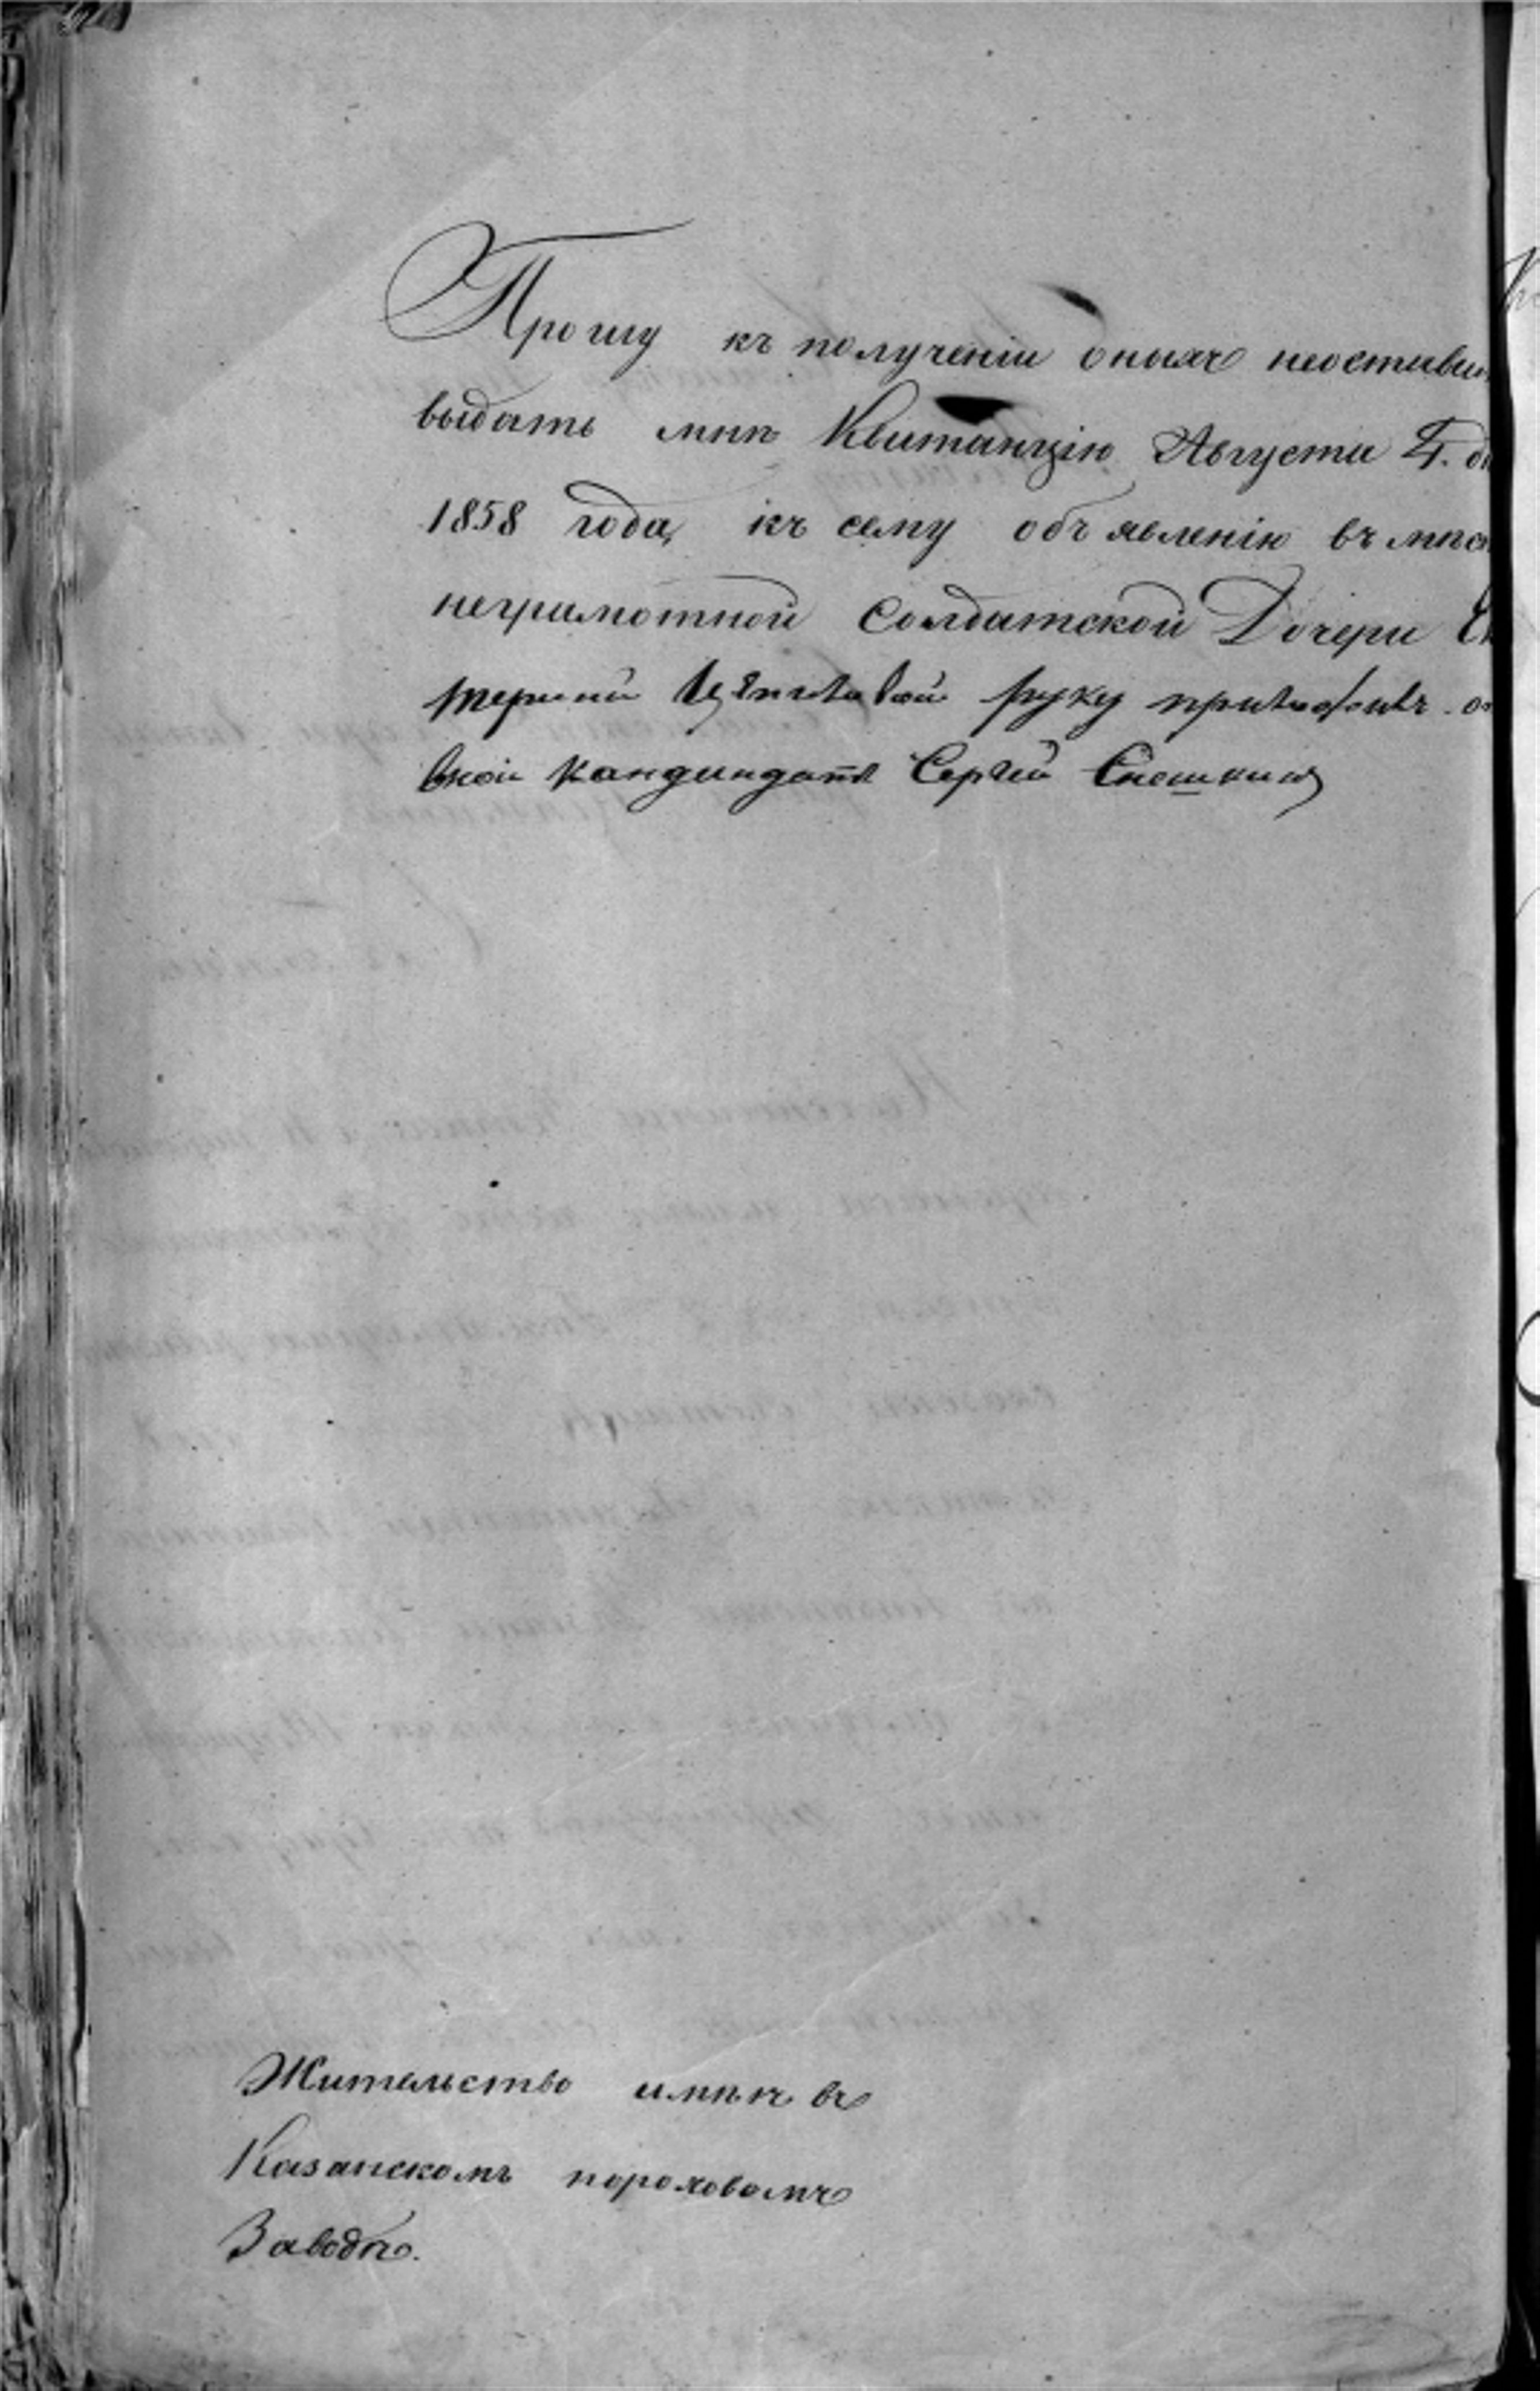 Прошу къ полученіи оныхъ неостави
выдать мнѣ Квитанцію Августа 4. д
1858 года, къ сему объявленію въ мѣс
неграмотной Солдатской Дочери Ек
териной руку приложилъ
Кандиндатъ Сергѣй
Жительство имѣю въ
Казанскомъ пороховомъ
Заводѣ.